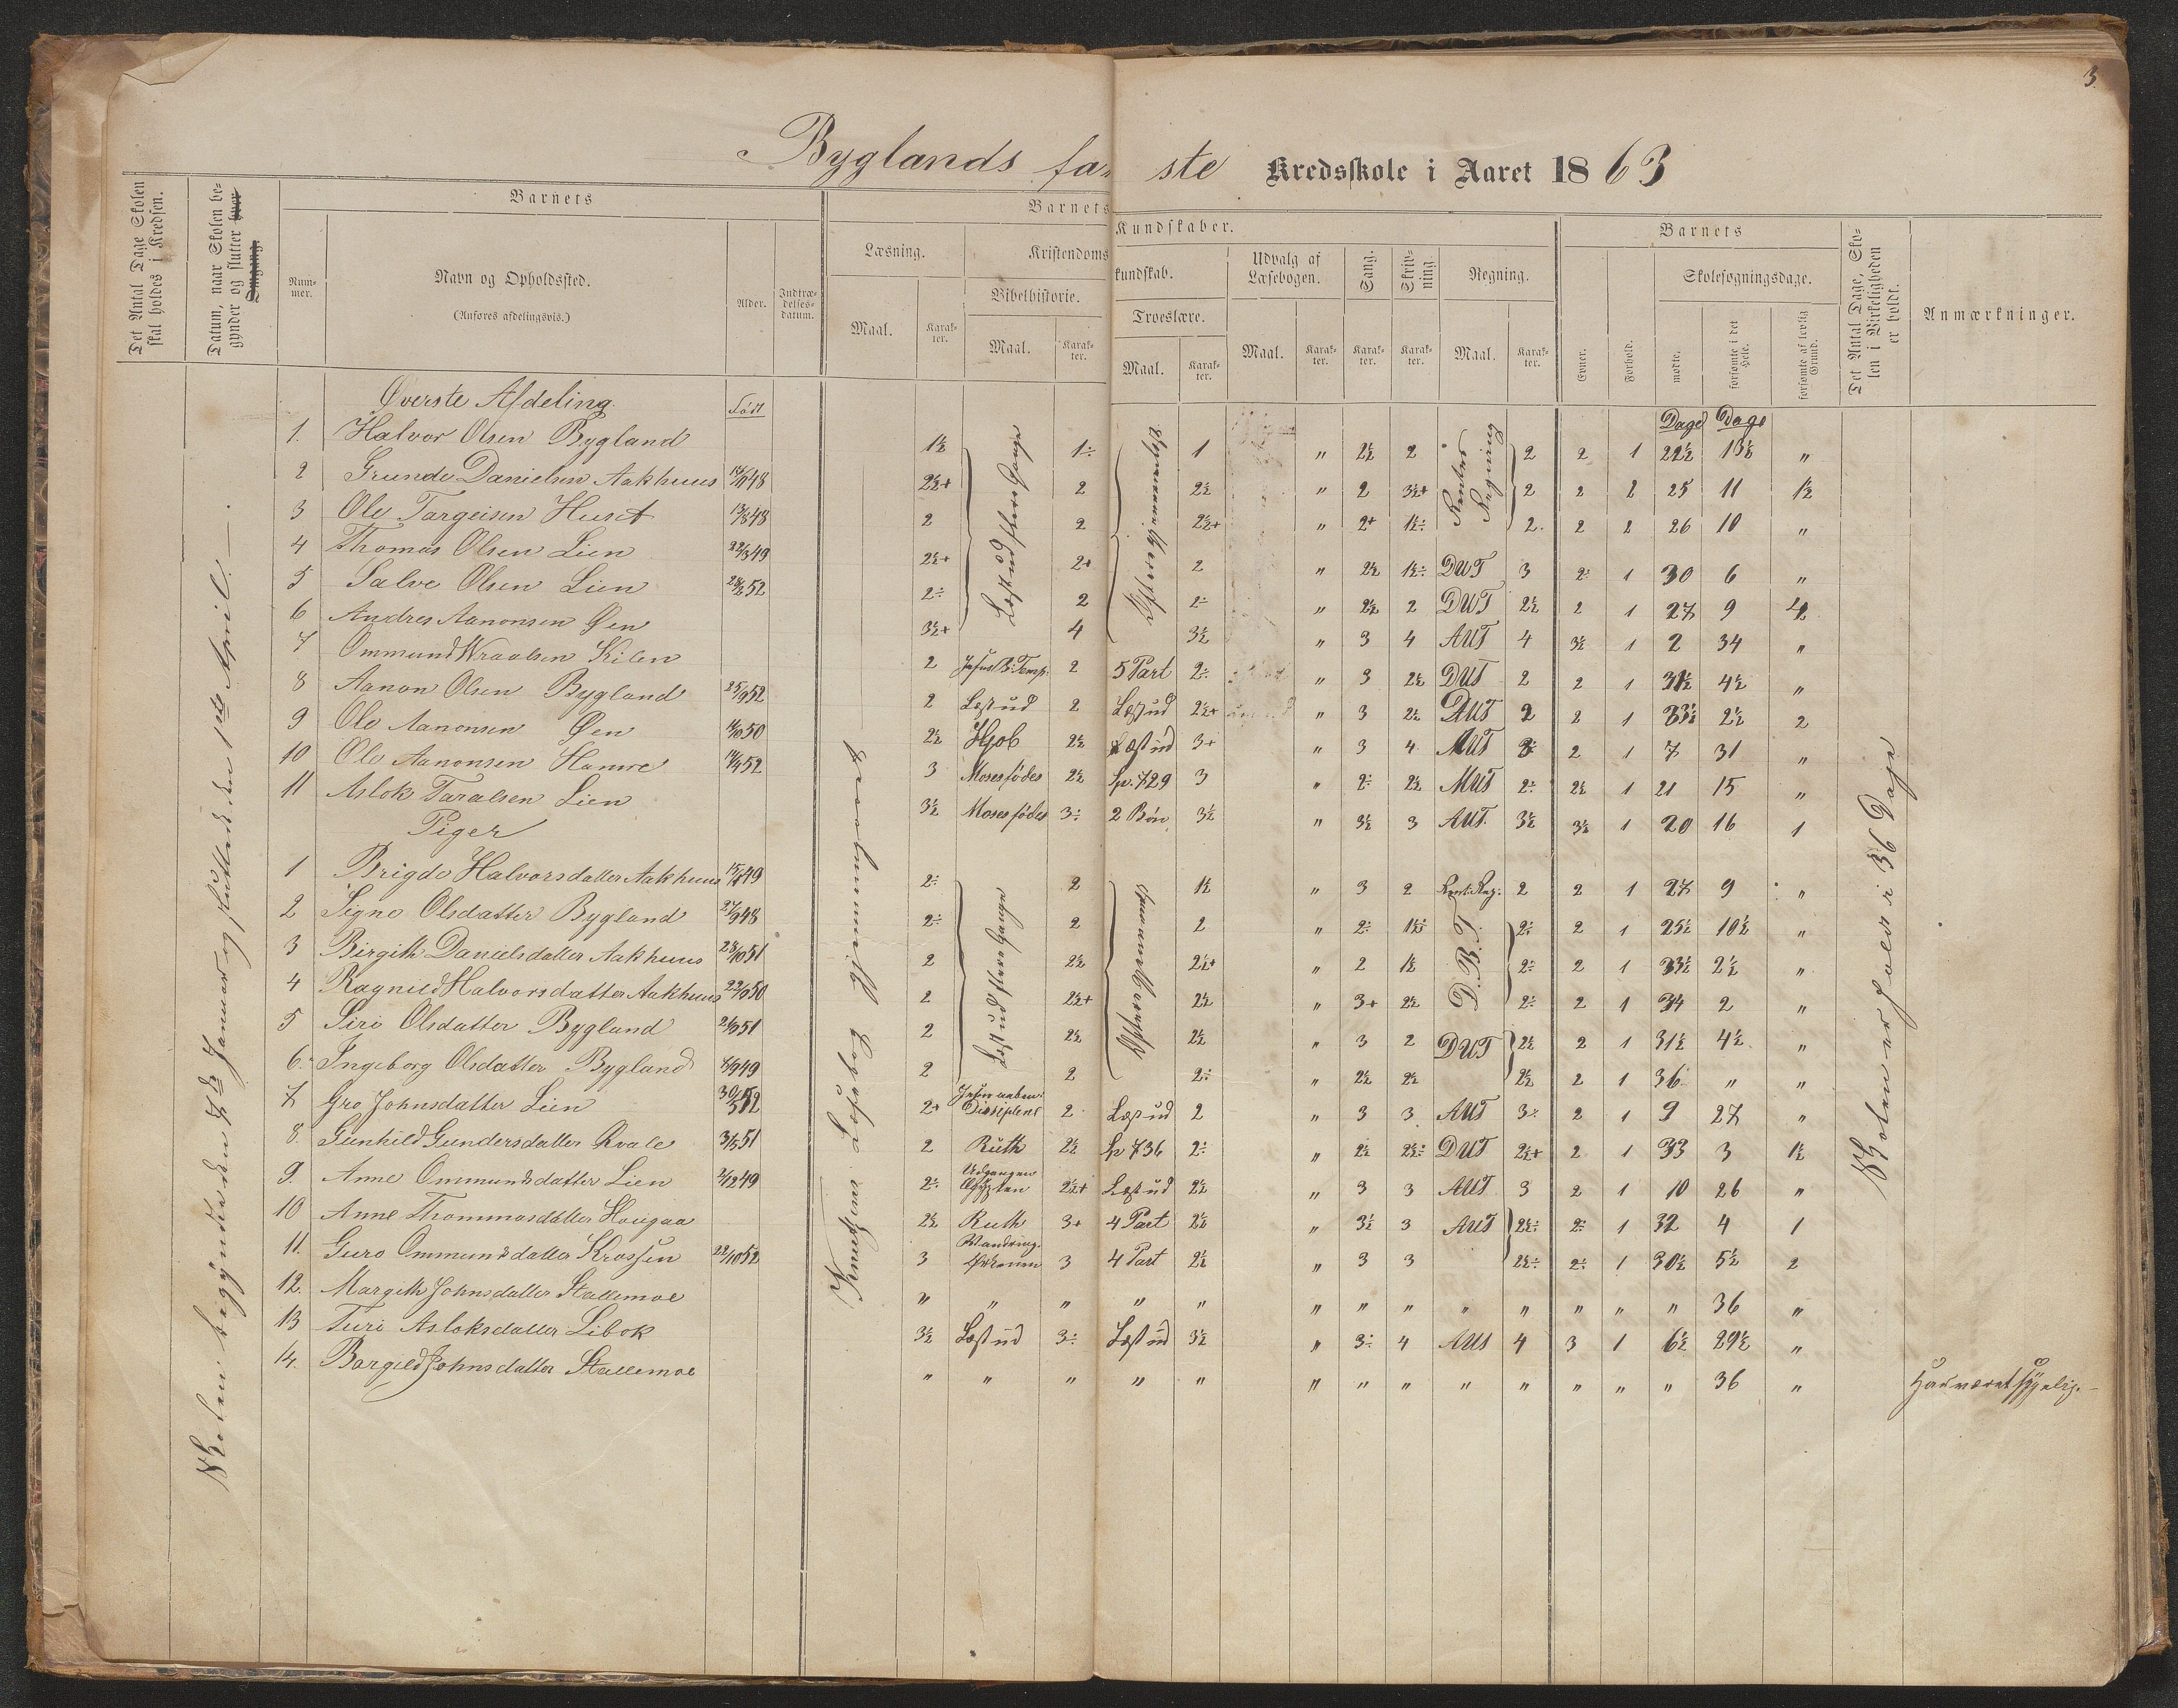 3.
Byglands fa ste Kredsskole i Aaret 1863
Det Antal Dage Skolen skal holdes i Kredsen.
Datum, naar Skolen begynder og slutter hver Omgang.
Barnets
Nummer.
Navn og Opholdssted.
(Anføres afdelingsvis.)
Alder.
Indtrædelsesdatum.
Barnets Kundskaber.
Læsning.
Maal.
Karakter.
Kristendomskundskab.
Bibelhistorie.
Maal.
Karakter.
Troeslære.
Maal.
Karakter.
Udvalg af Læsebogen.
Maal.
Karakter.
Sang.
Karakter.
Skrivning.
Karakter.
Regning.
Maal.
Karakter.
Barnets
Evner.
Forhold.
Skolesøgningsdage.
mødte.
forsømte i det Hele.
forsømte af lovlig Grund.
Det Antal Dage, Skolen i Virkeligheden er holdt.
Anmærkninger.
Skolen begyndte den 7de Januar og sluttede den 1ste April.
Læsebog gjennemgaaet
Skolen er holdt i 36 Dage
Øverste Afdeling. Født Dage Dage
1. Halvor Olsen Bygland 1½ 1÷ 1 " 2½ 2 2 2 1 22½ 13½ "
2 Grunde Danielsen Aakhuus 48 2½+ 2 2½ " 2 3½+ 2 2 2 25 11 1½
3 Ole Targeisen Huset 48 2 2 2½+ " 2+ 1½÷ 2. 2 2 26 10 "
4 Thomas Olsen Lien 22/3 49 2½+ 2+ 2 " 2½ 1½÷ DUT 3 2÷ 1 30 6 "
5 Salve Olsen Lien 52 2÷ 2 2÷ " 2½ 2 DUT 2½ 2 1 27 9
6 Andres Aanonsen Øen 3½+ 4 3½ " 3 4 AUT 4 3½ 1 2 34 "
7 Ommund Wraalsen Kilen 2 2 5 Part 2÷ " 3 2½ DUT 2 2 1 31½ 4½ "
8 Aanon Olsen Bygland 25/9 52 2 Læst ud 2 Læst ud 2½+ " 3 2½ DUT 2 2 1 33½ 2½ 2
9 Ole Aanonsen Øen 50 2½ Hjob 2½ Læst ud 3+ " 3 4 AUT 3÷ 2 1 7 31 "
10 Ole Aanonsen Hamre 52 3 Moses fødes 2½ Sp. 729 3 " 2÷ 2½ MUT 2÷ 2½ 1 21 15 "
11 Aslok Taralsen Lien 3½ Moses fødes 3÷ 2 Bøn 3½ " 3½ 3 AUT. 3½ 3½ 1 20 16 1
Læst ud flere Gange
Rentes Regning
Piger
1 Brigde Halvorsdatter Aakhuus 49 2÷ 2 1½ " 3 2 Rent. Reg: 2 2 1 27 9 "
2 Signe Olsdatter Bygland 27/9 48 2÷ 2 2 " 2÷ 1½÷ 2÷ 2 1 25½ 10½ "
3 Birgith Danielsdatter Aakhuus 28/10 51 2 2½ 2½+ " 2 1½ D.B.T. 2÷ 2 1 33½ 2½ "
4 Ragnild Halvorsdatter Aakhuus 22/9 50 2 2½+ 2½ " 3+ 2½ 2÷ 2 1 34 2 "
5 Siri Olsdatter Bygland 51 2 2½ 2½ " 3 2 DUT 2½ 2 1 31½ 4½ "
6. Ingeborg Olsdatter Bygland 49 2 2 2÷ " 2½ 2½ 2½ 2 1 36 " "
Læst ud flere Gange
7 Gro Johnsdatter Lien 2+ Disciplene 2 Læst ud 2 " 3 3 AUT 3÷ 2 1 9 27 "
8. Gunhild Gundersdatter Kvale 51 2 Ruth 2½ Sp 736 2÷ " 2½ 2½÷ DUT 2½+ 2 1 33 3 1½
9. Anne Ommundsdatter Lien 2/12 49 2÷ Udgangen Ægypten 2½+ Læst ud 2½ " 3 3 AUT 3 2 1 10 26 "
10 Anne Thommasdatter Hougaa 2½ Ruth 3+ 4 Part 2½ " 3½ 3 AUT 2½÷ 2÷ 1 32 4 1
11. Guro Ommundsdatter Krossen 22/10 52 3 Vandring. 3 4 Part 2½ " 3 3 2½÷ 2÷ 1 30½ 5½ 2
12. Margith Johnsdatter Stallemoe " " " " " " " " " " " " " 36 "
13 Turi Asloksdatter Libok 3½ Læst ud 3÷ Læst ud 3½ " 3÷ 4 AUS 4 3 1 6½ 29½ "
14. Borgild Johnsdatter Stallemoe " " " " " " " " " " " " " 36 " Har været sygelig.